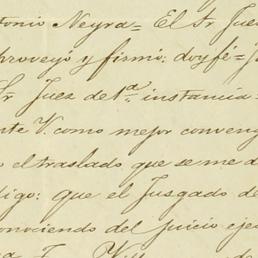 tonio Neyra= El Sr Juez
proveyo y firmo: doy fé=
Sr Juez de 1ª instancia=
nte V. como mejor conveng
o el traslado que se me d
digo: que el Juzgado de
onociendo del juicio eje